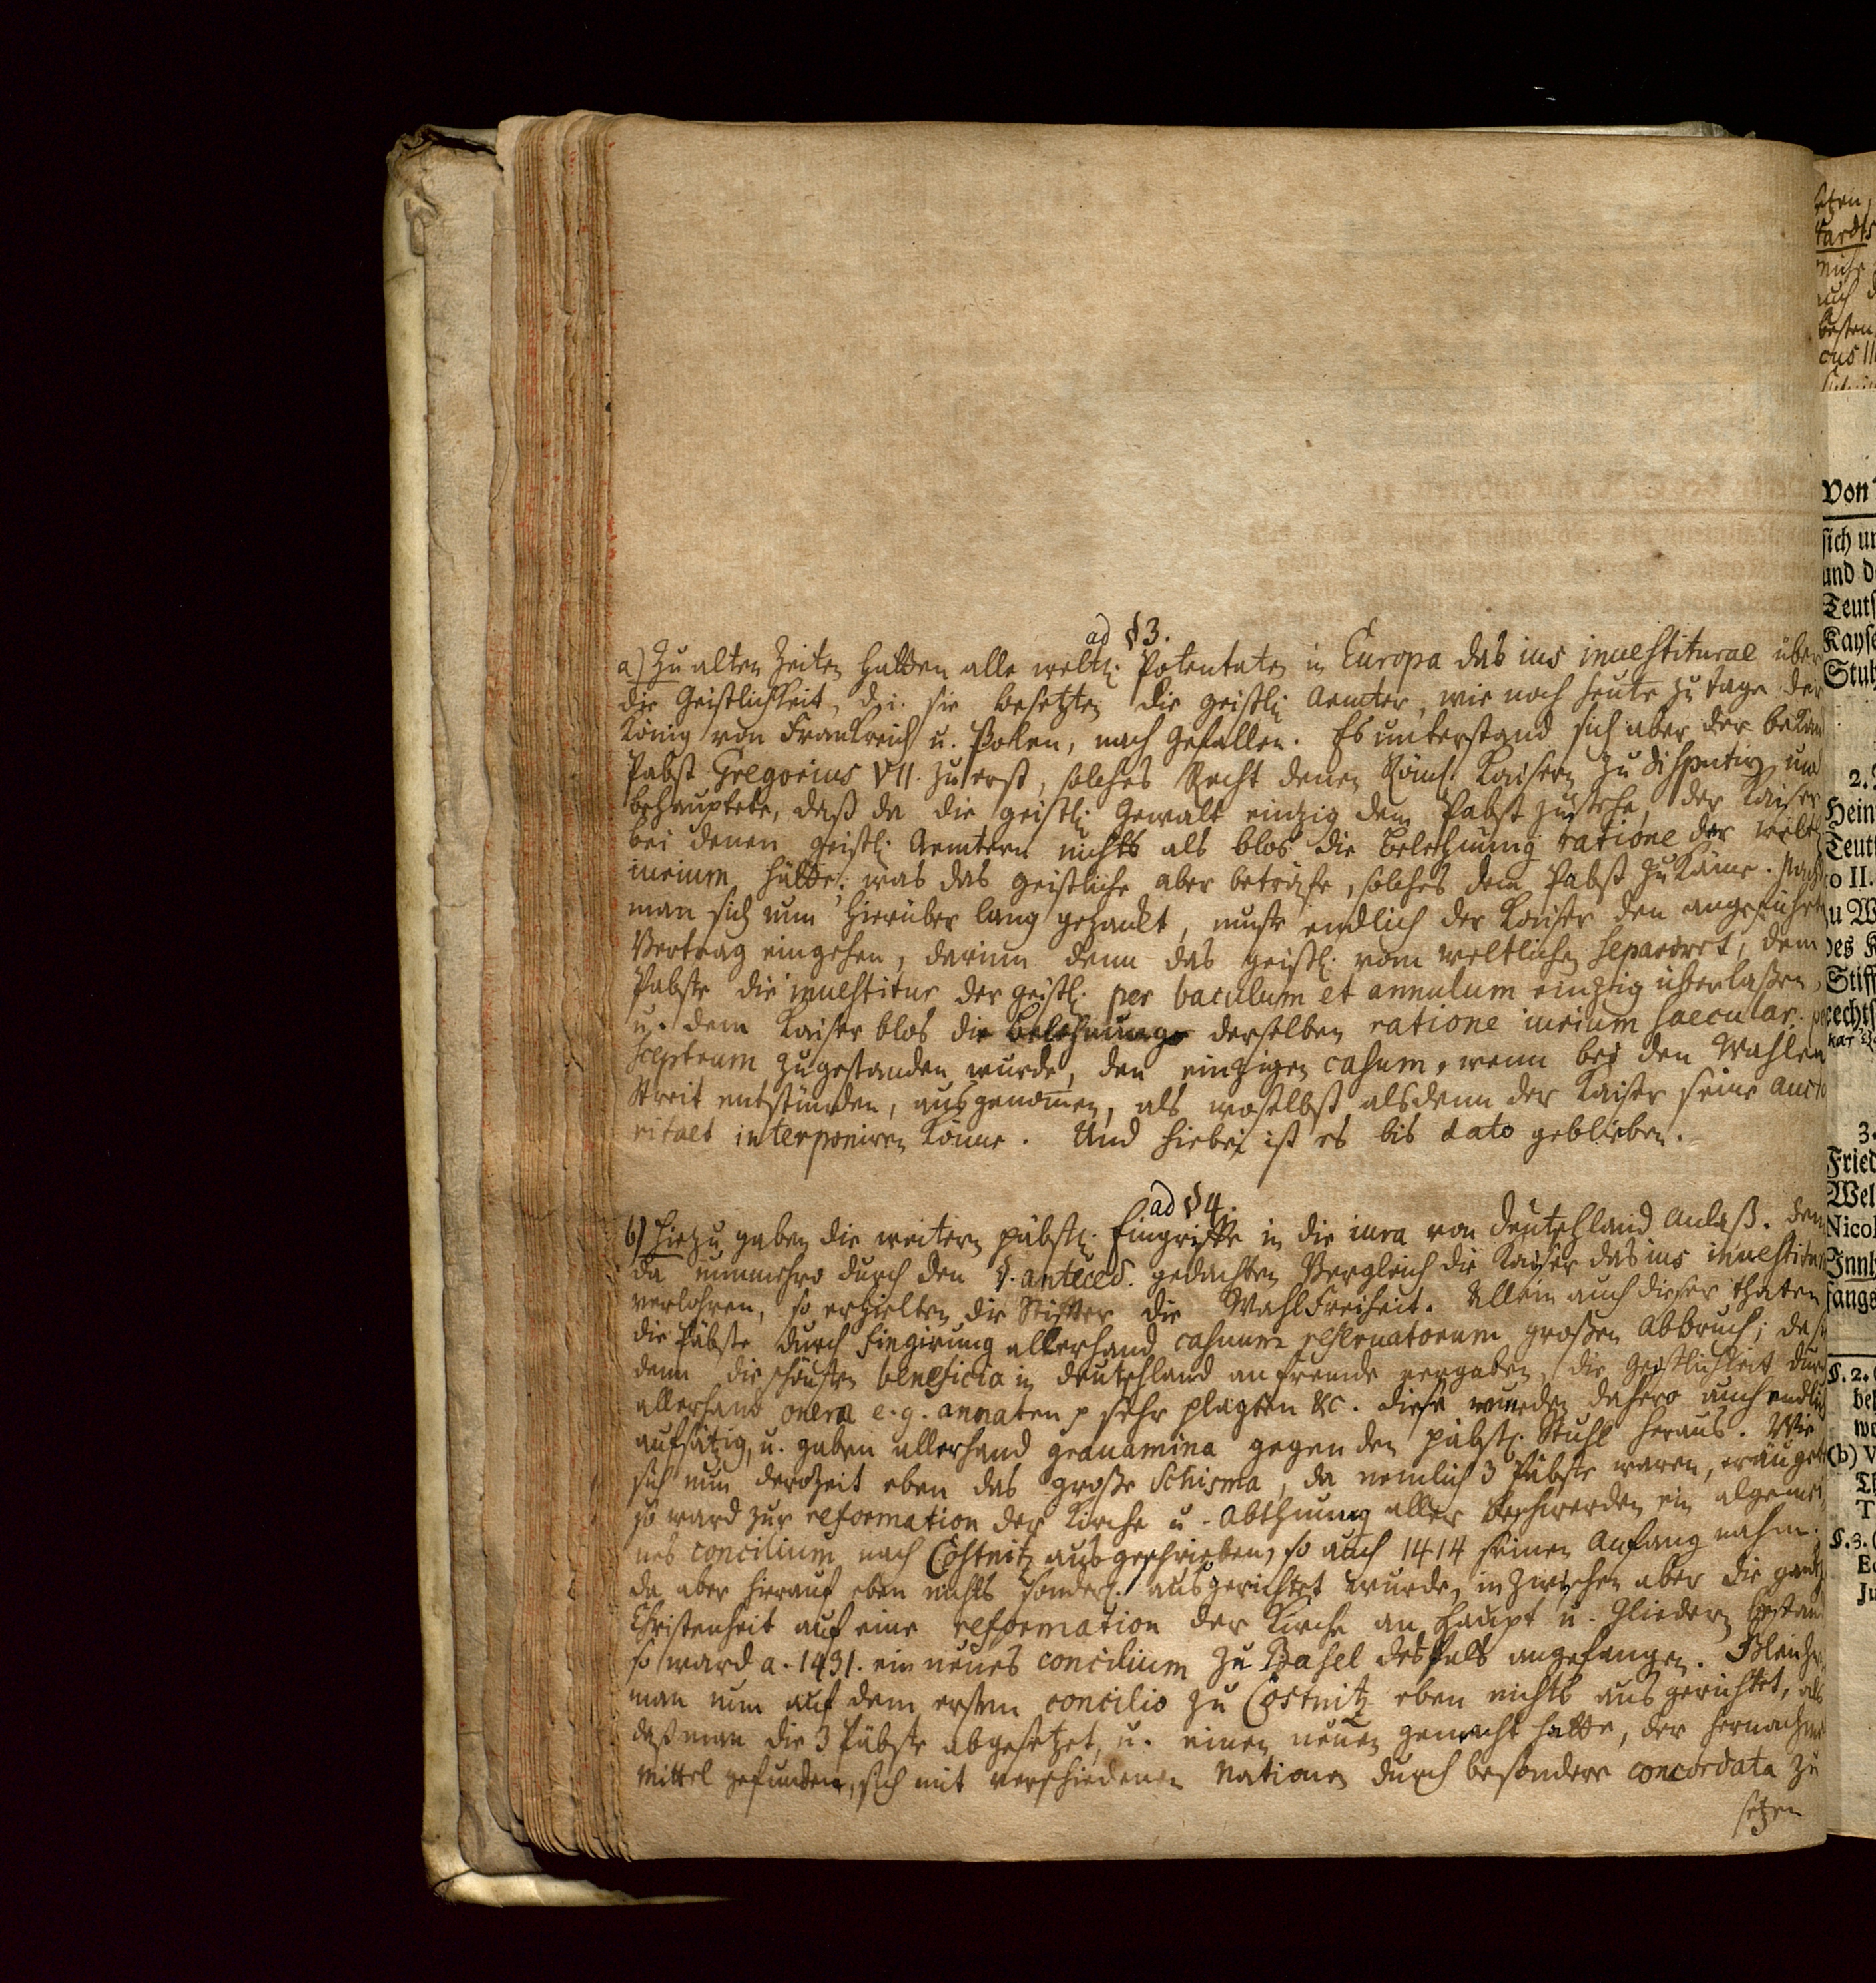 ad §3.
a) Zu alten Zeiten hatten alle weltl. Potentaten in Europa das ius inuestiturae über
die Geistlichkeit, d. i. sie besetzten die geistl. Aemter, wie noch heute zu tage der
König von Frankreich u. Pohlen, nach Gefallen. Es unterstand sich aber der bekan
Pabst Gregorius VII. zu erst, solches Recht denen Röm. Kaisern zu disputiren und
behauptete, daß da die geistl. Gewalt einzig dem Pabst zustehe, der Kaiser
bei denen geistl. Aemtern nichts als blos die Belehnung ratione der weltl.
iurium hätte; was das geistliche aber beträfe, solches dem Pabst zukäme. Nach
man sich nun hierüber lang gezankt, muste endlich der Kaiser den angeführt
Vertrag eingehen, darinn denn das geistl. vom weltlichen separiret, dem
Pabste die inuestitur der geistl. per baculum et annulum einzig überlaßen,
u. dem Kaiser blos die Belehnung derselben ratione iurium saecular. per
sceptrum zugestanden wurde, den einzigen casum, wenn bei den Wahlen
Streit entstünden, ausgenom̄en, als woselbst alsdenn der Kaiser seine aucto
ritaet interponiren könne. Und hiebei ist es bis dato geblieben.
ad §4.
b) Hiezu gaben die weitern päbstl. Eingriffe in die iura von Deutschland Anlaß. Den
da nunmehro durch den §. anteced. gedachten Vergleich die Kaiser das ius inuestitur
verlohren, so erhielten die Stifter die WahlFreiheit. Allein auch dieser thaten
die Päbste durch Fingirung allerhand casuum reseruatorum großen Abbruch; da sie
denn die schönsten beneficia in Deutschland an fremde vergaben, die Geistlichkeit durch
allerhand onera e. g. annaten p sehr plagten &c. diese wurden dahero auch endlich
aufsätzig, u. gaben allerhand grauamina gegen den päbstl. Stuhl heraus. Wie
sich nun derozeit eben das große Schisma, da nemlich 3 Päbste waren, eräuget
so ward zur reformation der Kirche u. Abthuung aller Beschwerden ein algemei
nes concilium nach Costnitz ausgeschrieben, so auch 1414 seinen Anfang nahm.
da aber hierauf eben nichts sonderl. ausgerichtet wurde, inzwischen aber die gantz
Christenheit auf eine reformation der Kirche an Haupt u. Gliedern bestan
so ward a. 1431. ein neues concilium zu Basel desfals angefangen. Gleich
man nun auf dem ersten concilio zu Costnitz eben nichts ausgerichtet, als
daß man die 3 Päbste abgesetzet, u. einen neuen gemacht hatte, der hernach
Mittel gefunden, sich mit verschiedenen Nationen durch besondere concordata zu
setzen
Von
sich un
und d
Teuts
Kayse
Stuh
2.
Hein
Teut
to II.
zu W
des K
Stiff
rechts
3.
Fried
Wel
Nicol
Innh
fangs
§. 2.
bel
(b) V
Th
T
§. 3.
Ju